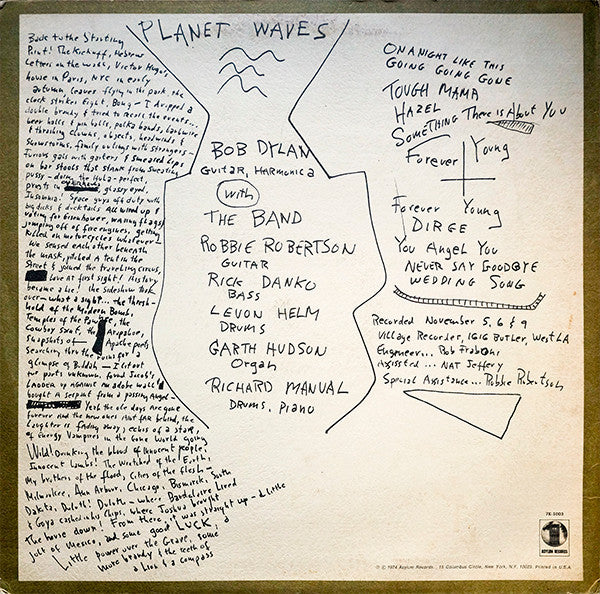 PLANET WAVES
Back to the Starting
Point! The Kickoff, Hebrew
Letters on the wall, Victor Hugo's
house in Paris, NYC in early
autumn, leaves flying in the park, the
clock strikes Eight, Bong — I dropped a
double brandy & tried to recall the events...
beer halls & pin balls, polka bands, barbwire
& thrashing clowns, objects, headwinds &
Snowstorms, family outings with strangers —
Furious gals with garters & smeared lips
on bar stools that stank from sweating
pussy — doing the Hula — perfect,
priests in glassy eyed,
Insomnia! Space guys off duty with
big dicks & ducktails All wired up &
voting for Eisenhower, waving flags &
jumping off of fire engines, getting
killed on motorcycles whatever —
We sensed each other beneath
the mask, pitched a tent in the
Street & joined the traveling circus,
love at first sight! History
became a lie! the sideshow took
over — what a sight... the thresh-
hold of the Modern Bomb,
Temples of the Pawnee, the
Cowboy saint, the Arapahoe,
Snapshots of Apache poets
Searching thru the ruins for a
glimpse of Buddah — I lit out
for parts unknown, found Jacob's
Ladder up against an adobe wall &
bought a serpent from a passing Angel —
Yeah the ole days are gone
forever And the new ones Aint far behind, the
Laughter is fading away, echos of a star,
of Energy Vampires in the Gone World going
Wild! Drinking the blood of innocent people,
Innocent Lambs! The Wretched of the Earth,
My brothers of the flood, Cities of the flesh —
Milwaukee, Ann Arbor, Chicago, Bismarck, South
Dakota, Duluth! Duluth — where Baudelaire Lived
& Goya cashed in his Chips, where Joshua brought
The house down! From there, it was straight up — a Little
jolt of Mexico, and some good LUCK, a
Little power over the Grave, some
more brandy & the teeth of
a Lion & a compass
BOB DYLAN
GUITAR, HARMONICA
with
THE BAND
ROBBIE ROBERTSON
GUITAR
RICK DANKO
BASS
LEVON HELM
DRUMS
GARTH HUDSON
Organ
RICHARD MANUAL
DRUMS, PIANO
ON A NIGHT LIKE THIS
GOING GOING GONE
TOUGH MAMA
HAZEL
SOMETHING There is About You
Forever Young
Forever Young
DIRGE
You Angel You
NEVER SAY GOODBYE
WEDDING SONG
Recorded November 5, 6 & 9
Village Recorder, 1616 Butler, West LA
Engineer... Rob Fraboni
Assisted... NAT Jeffery
Special Assistance... Robbie Robertson
7E-1003
ASYLUM RECORDS
© ℗ 1974 Asylum Records, 15 Columbus Circle, New York, N.Y. 10023. Printed in U.S.A.